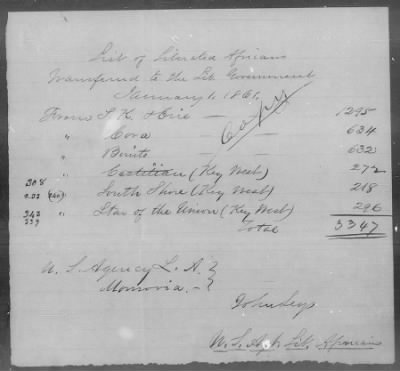 List of Liberated Africans
Transferred to the Lib. Government
January 1, 1861.
Copy
From S. K. & Erie — 1295
" Cora — 634
" Bonito — 632
308 " Castilian (Key West) 272
" South Shore (Key West) 218
343 " Star of the Union (Key West) 296
Total 3347
U. S. Agency L. A. }
Monrovia. - }
John Seys
U. S. Agt. Lib. Africans